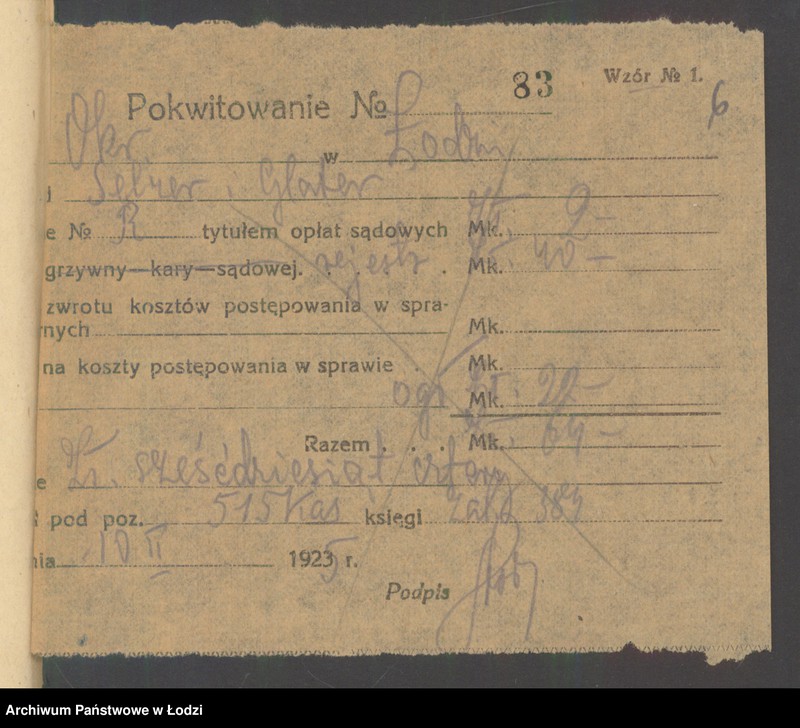 83 Wzór № 1.
Pokwitowanie № 6
Okr. w Łodzi
j Selzer i Glater
e № R tytułem opłat sądowych Mk. 2 –
grzywny—kary—sądowej. rejestr . Mk. 40 –
zwrotu kosztów postępowania w spra-
rnych Mk.
na koszty postępowania w sprawie . Mk.
ogł Mk. 22 –
Razem . . . Mk. 64 –
e Zł. sześćdziesiąt cztery
pod poz. 515 Kas księgi
nia 10 II 1923 5 r.
Podpis
Archiwum Państwowe w Łodzi